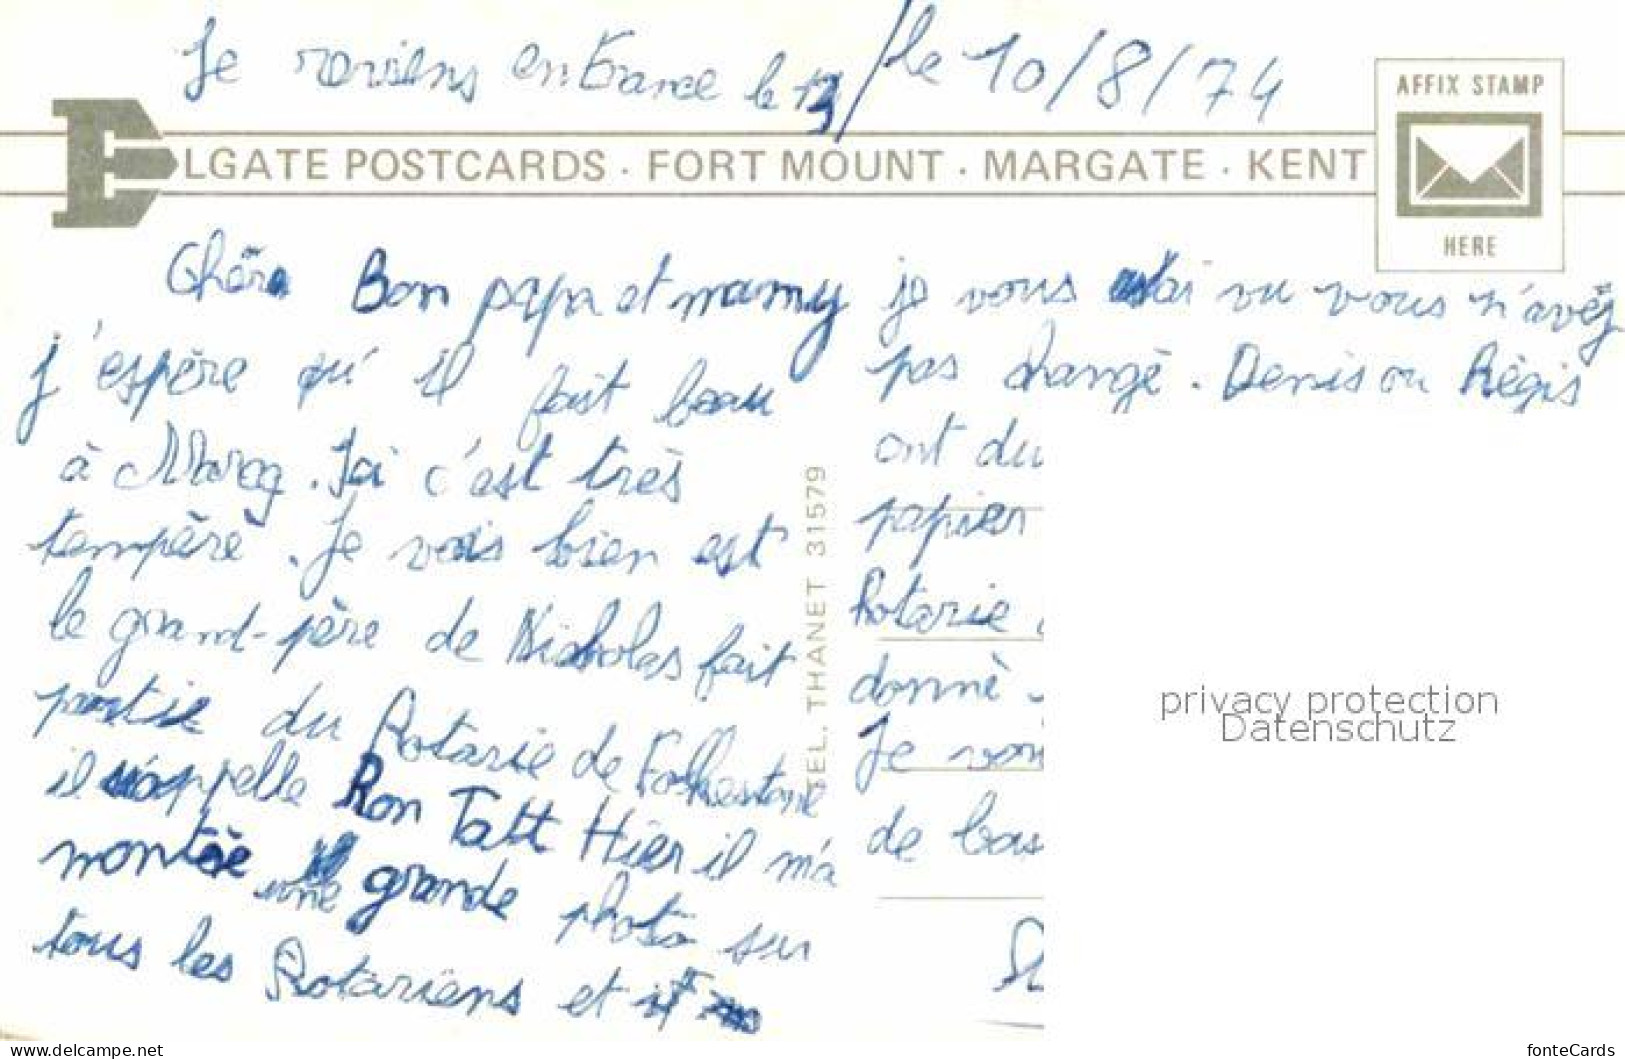 Je reviens en France le 13 / le 10/8/74
AFFIX STAMP
HERE
ELGATE POSTCARDS · FORT MOUNT · MARGATE · KENT
Chèrs Bon papa et mamy
j'espère qu'il fait beau
à Marcq. Ici c'est très
tempèrè. Je vais bien est
le grand-père de Nicholas fait
partie du Rotarie de Folkestone
il s'appelle Ron Tatt Hier il m'a
montèe une grande photo sur
tous les Rotariens et
TEL. THANET 31579
je vous ai vu vous n'avéz
pas changè. Denis ou Règis
ont du
papier
Rotarie
donnè
Je
de
privacy protection
Datenschutz
www.delcampe.net
fonteCards